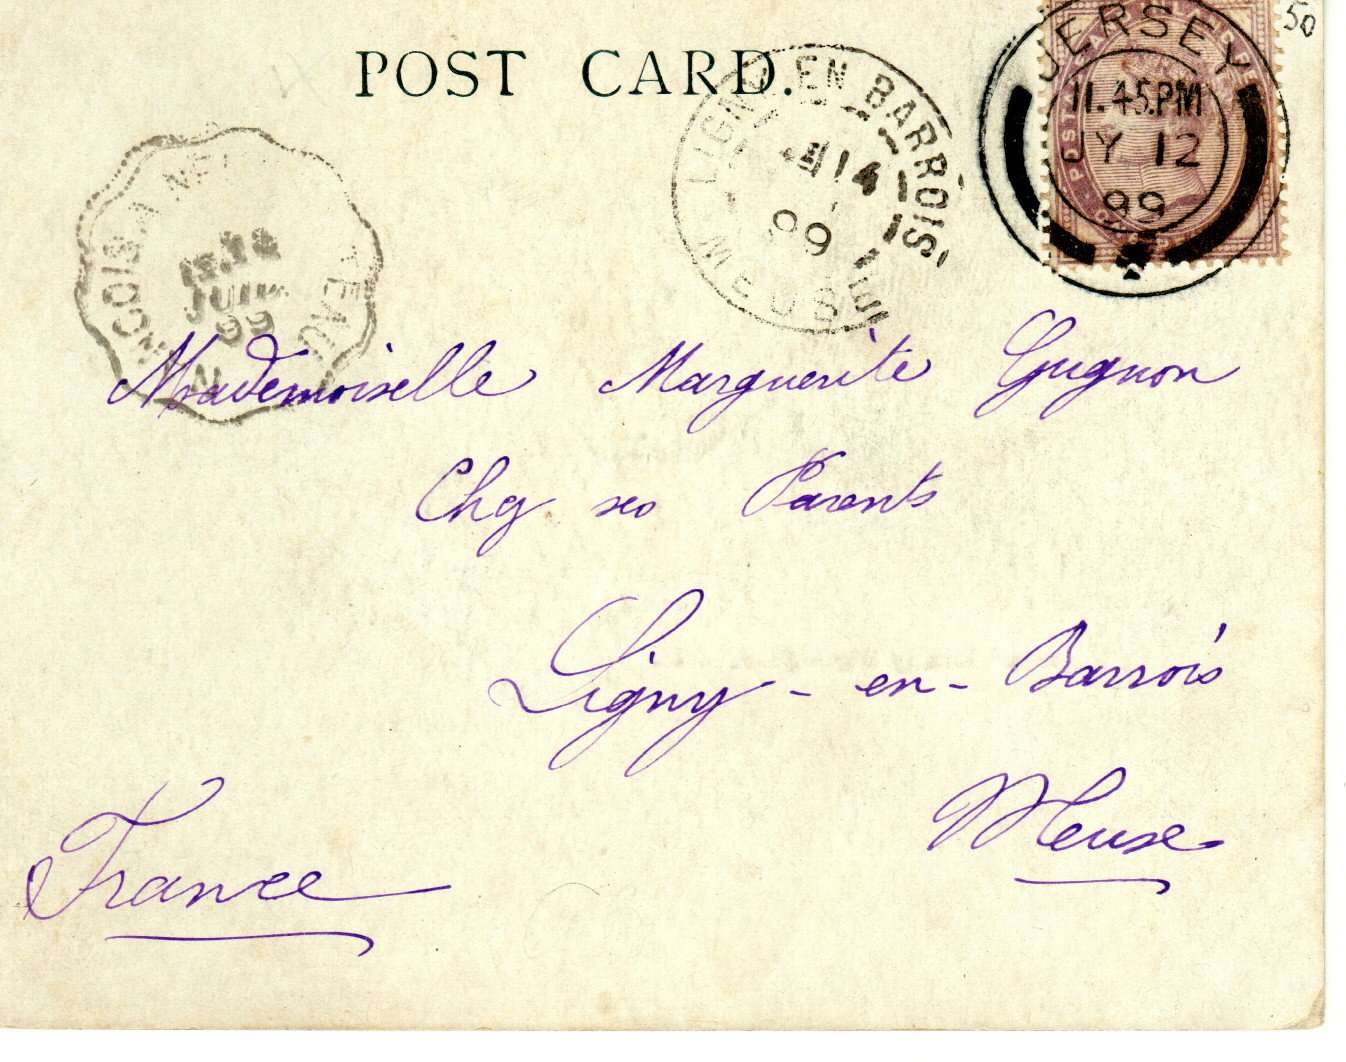 POST CARD.
50
JERSEY
11.45.PM
JY 12
99
LIGNY EN BARROIS
14
99
MEUSE
JUIL
99
Mademoiselle Marguerite Gugnon
Chez ses Parents
Ligny - en - Barrois
Meuse
France